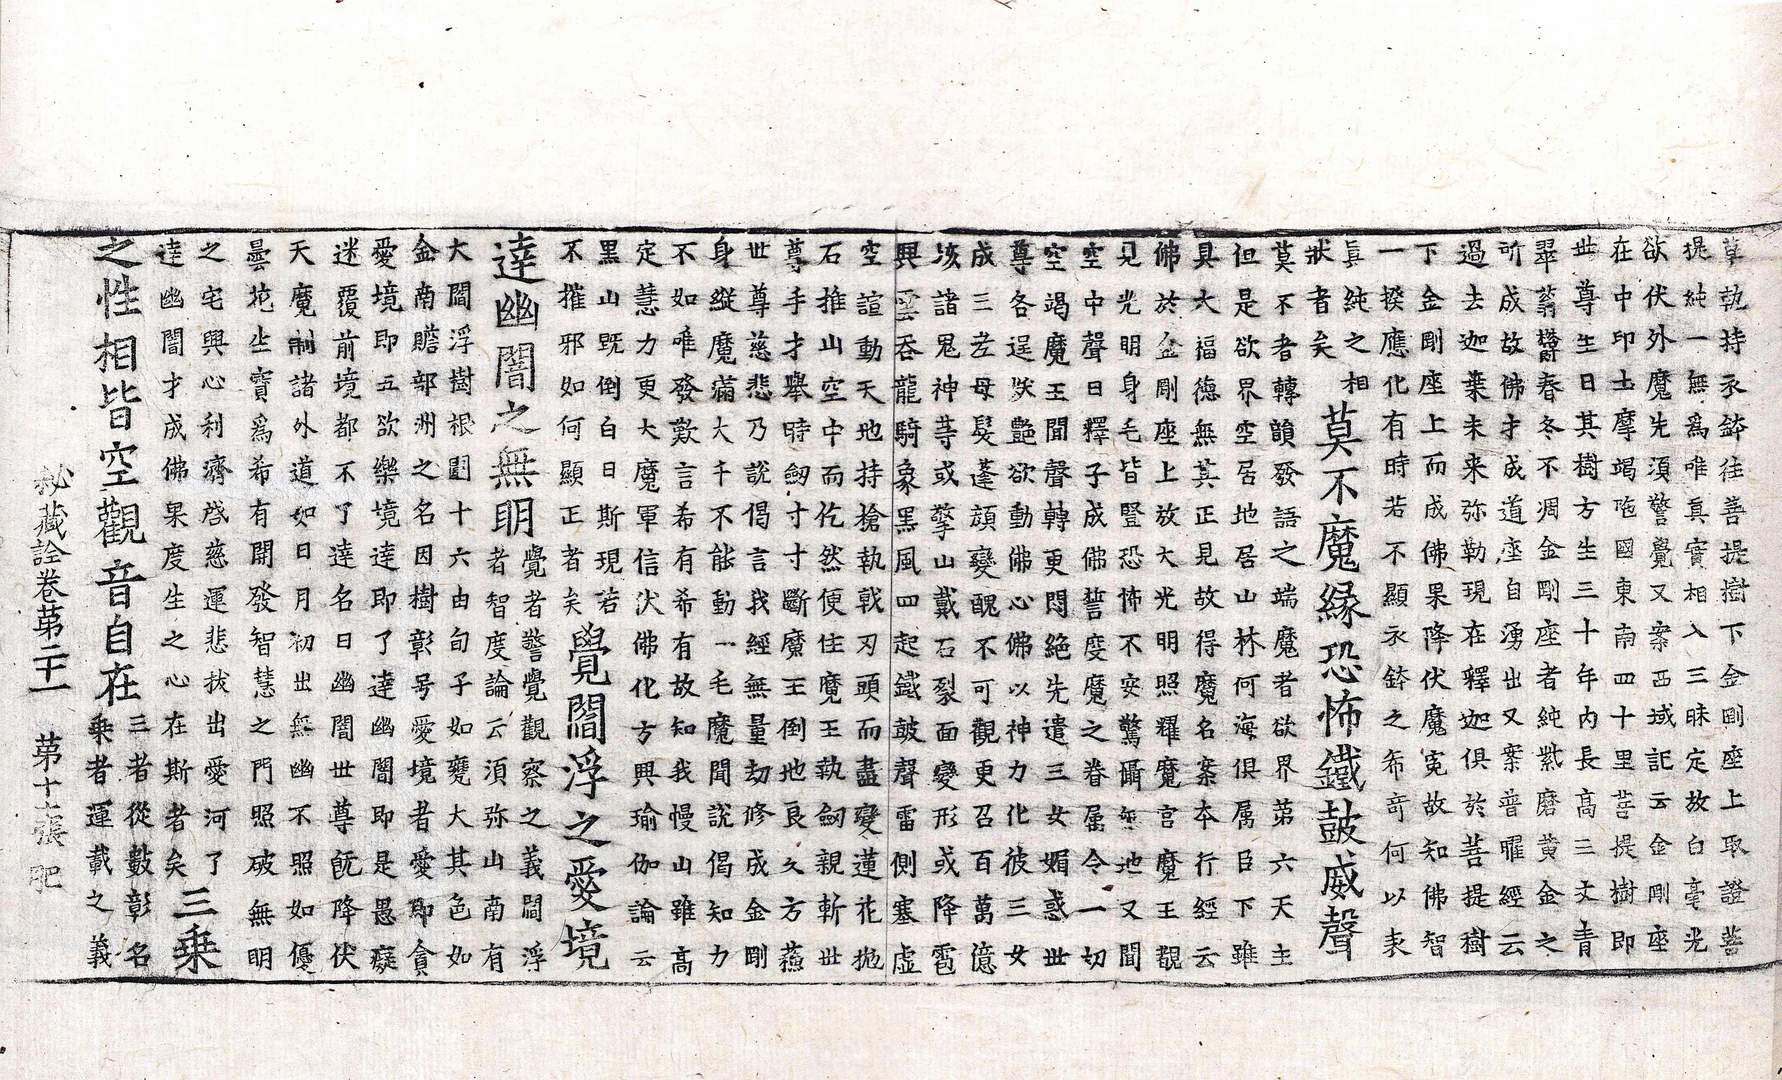 草執持衣鉢往菩提樹下金剛座上取證菩
提純一無為唯真實相入三昧定故白毫光
欲伏外魔先須警覺又案西域記云金剛座
在中印土摩竭陁國東南四十里菩提樹即
世尊生日其樹方生三十年內長高三丈青
翠蓊欝春冬不凋金剛座者純紫磨黃金之
所成故佛才成道座自湧出又案普曜經云
過去迦葉未来弥勒現在釋迦俱於菩提樹
下金剛座上而成佛果降伏魔冤故知佛智
一揆應化有時若不顯衣鉢之希奇何以表
真純之相
狀者矣
莫不魔緣恐怖鐵鼓威聲
莫不者轉韻發語之端魔者欲界第六天主
但是欲界空居地居山林何海俱属臣下雖
具大福德無其正見故得魔名案本行經云
佛於金剛座上放大光明照耀魔宮魔王覩
見光明身毛皆豎恐怖不安驚懾無地又聞
空中聲曰釋子成佛誓度魔之眷属令一切
空竭魔王聞聲轉更悶絕先遣三女媚惑世
尊各逞妖艷欲動佛心佛以神力化彼三女
成三老母髮蓬頭變醜不可觀更召百萬億
垓諸鬼神等或擎山戴石裂面變形或降雹
興雲吞龍騎象黑風四起鐵鼓聲雷側塞虛
空諠動天地持槍執戟刃頭而盡變蓮花拋
石推山空中而仡然便住魔王執劒親斬世
尊手才舉時劒寸寸斷魔王倒地良久方蘇
世尊慈悲乃說偈言我經無量劫修成金剛
身縱魔滿大千不能動一毛魔聞說偈知力
不如唯發歎言希有希有故知我慢山雖高
定慧力更大魔軍信伏佛化方興瑜伽論云
黑山旣倒白日斯現若
不摧邪如何顯正者矣
覺閻浮之愛境
達幽闇之無明
覺者警覺觀察之義閻浮
者智度論云須弥山南有
大閻浮樹根圍十六由旬子如甕大其色如
金南贍部洲之名因樹彰号愛境者愛即貪
愛境即五欲樂境達即了達幽闇即是愚癡
迷覆前境都不了達名曰幽闇世尊旣降伏
天魔制諸外道如日月初出無幽不照如優
曇花坐寶為希有開發智慧之門照破無明
之宅興心利濟啓慈運悲拔出愛河了
達幽闇才成佛果度生之心在斯者矣
三乗
之性相皆空觀音自在
三者從數彰名
乗者運載之義
秘藏詮卷第二十一　第十六張　肥